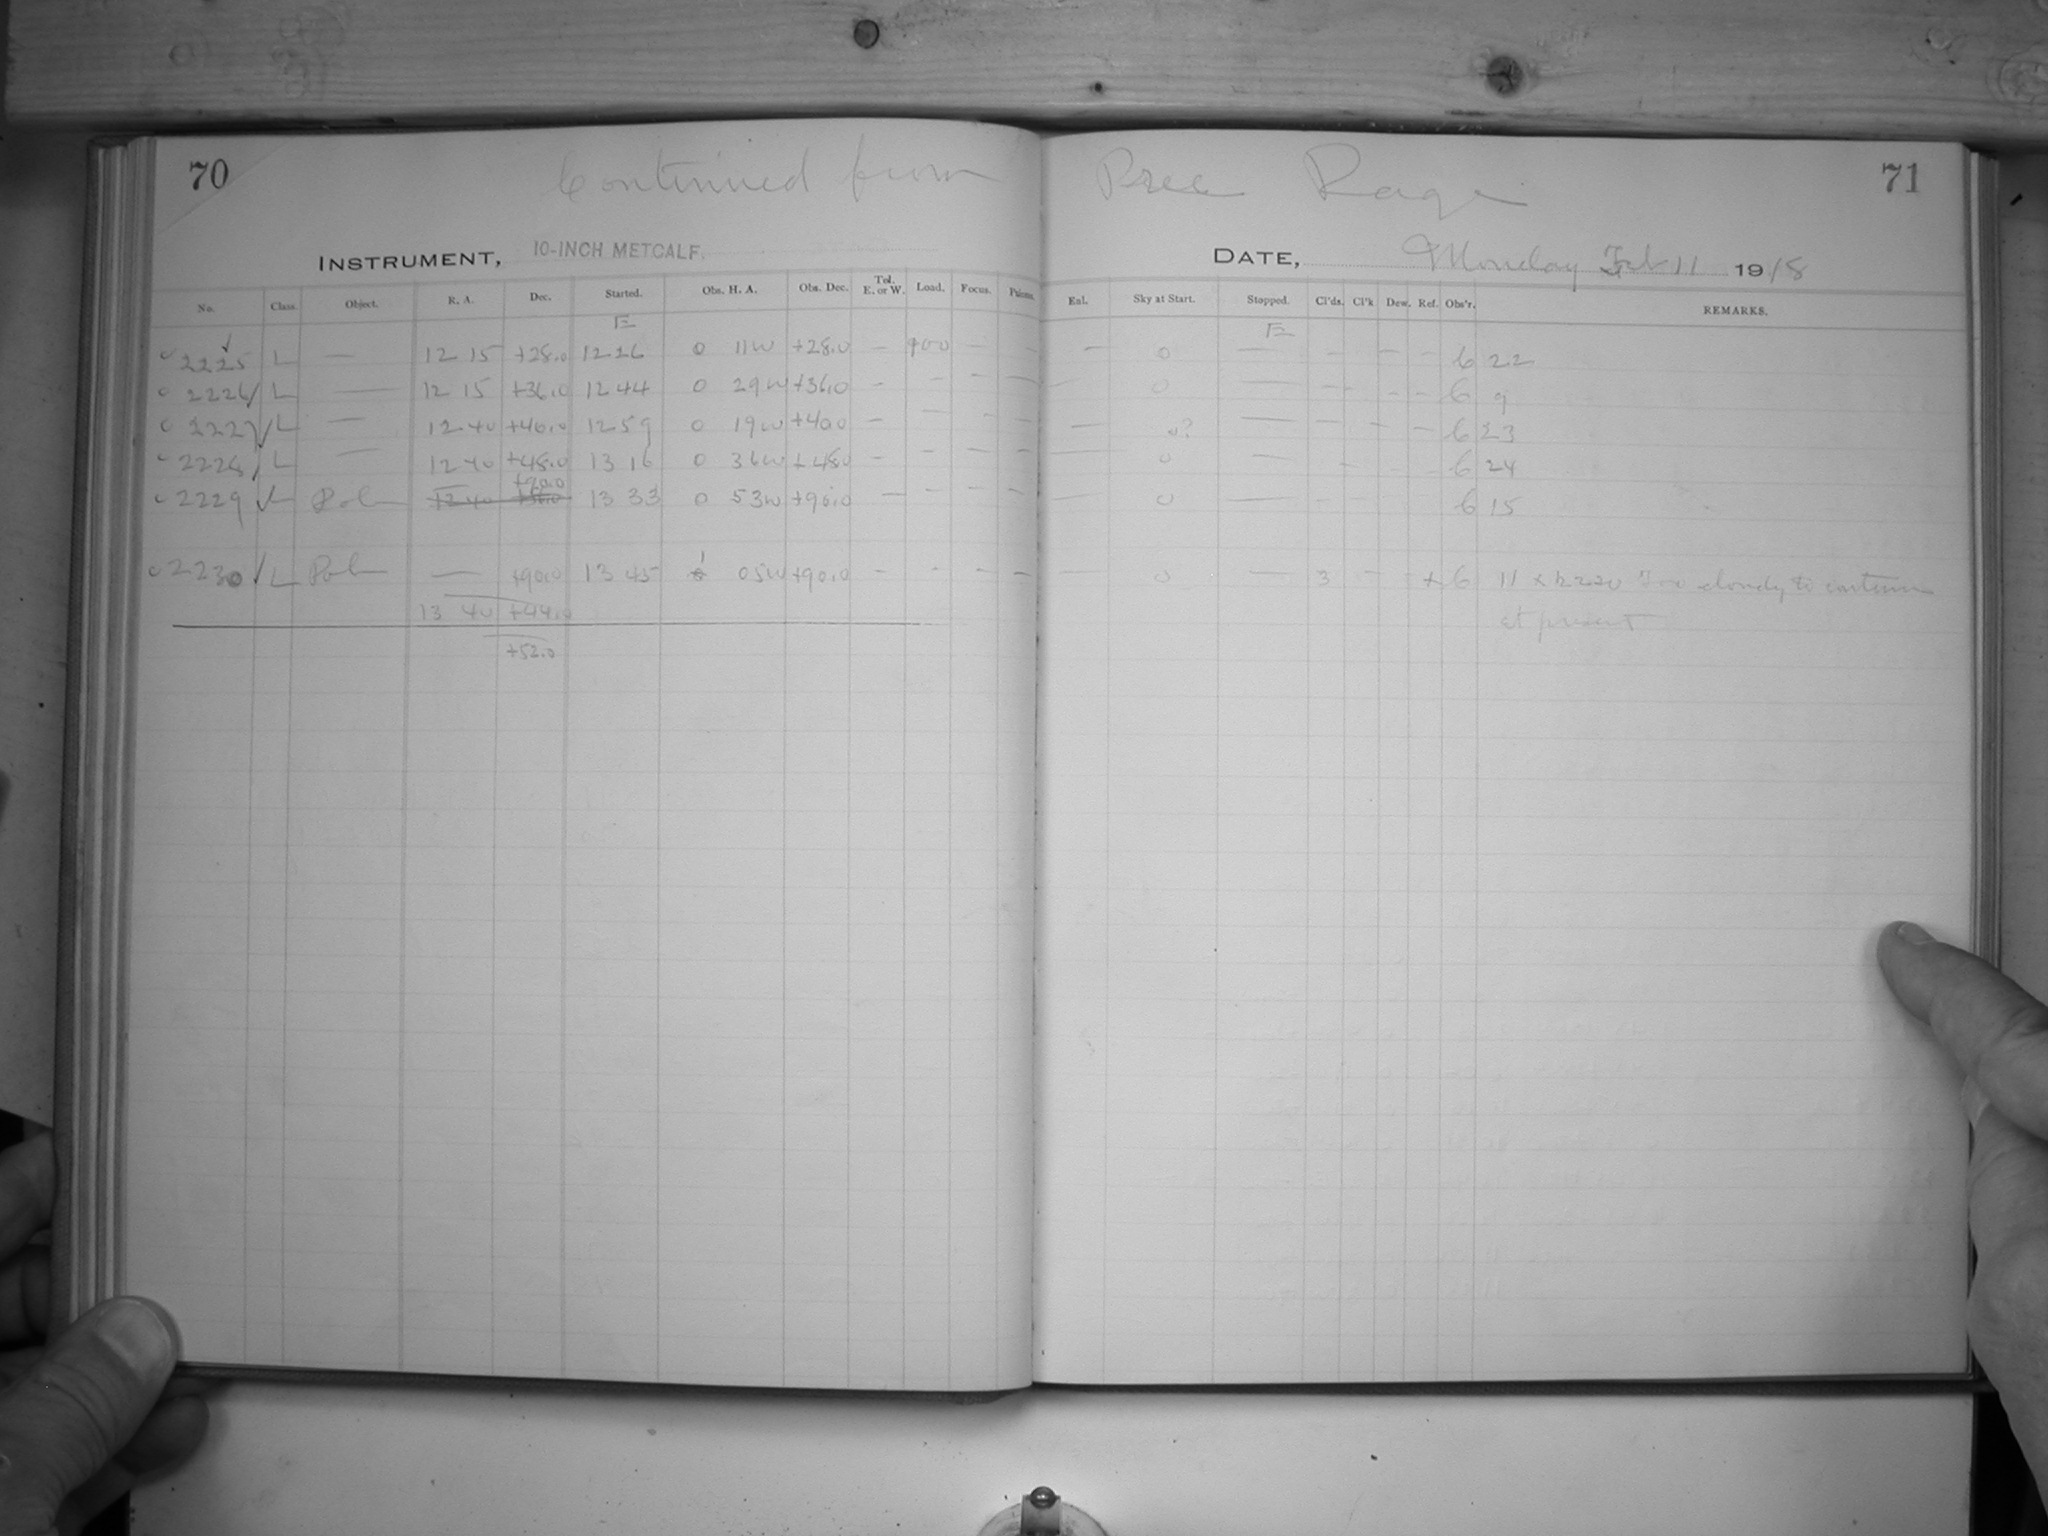 70 Continued from Prec Page 71
INSTRUMENT, 10-INCH METCALF. DATE, Monday Feb 11 1918
No. Class. Object. R. A. Dec. Started. Obs. H. A. Obs. Dec. Tel. E. or W. Load. Focus. Enl. Sky at Start. Stopped. Cl'ds. Cl'k Dew. Ref. Obs'r. REMARKS.
E E
2225 L — 12 15 +28.0 12 26 0 11W +28.0 — 900 — — — 0 — — — — 6 22
2226 L — 12 15 +36.0 12 44 0 29W +36.0 — — — — — 0 — — — — 6 9
2227 L — 12 40 +40.0 12 59 0 19W +40.0 — — — — — 0? — — — — 6 23
2228 L — 12 40 +48.0 13 16 0 36W +48.0 — — — — — 0 — — — — 6 24
+90.0
2229 L Pole 12 40 13 33 0 53W +90.0 — — — — — 0 — — — — 6 15
2230 L Pole — +90.0 13 45 1 05W +90.0 — — — — — 0 — 3 — + 6 11 Too cloudy to continue
13 40 +44.0 at present
+52.0